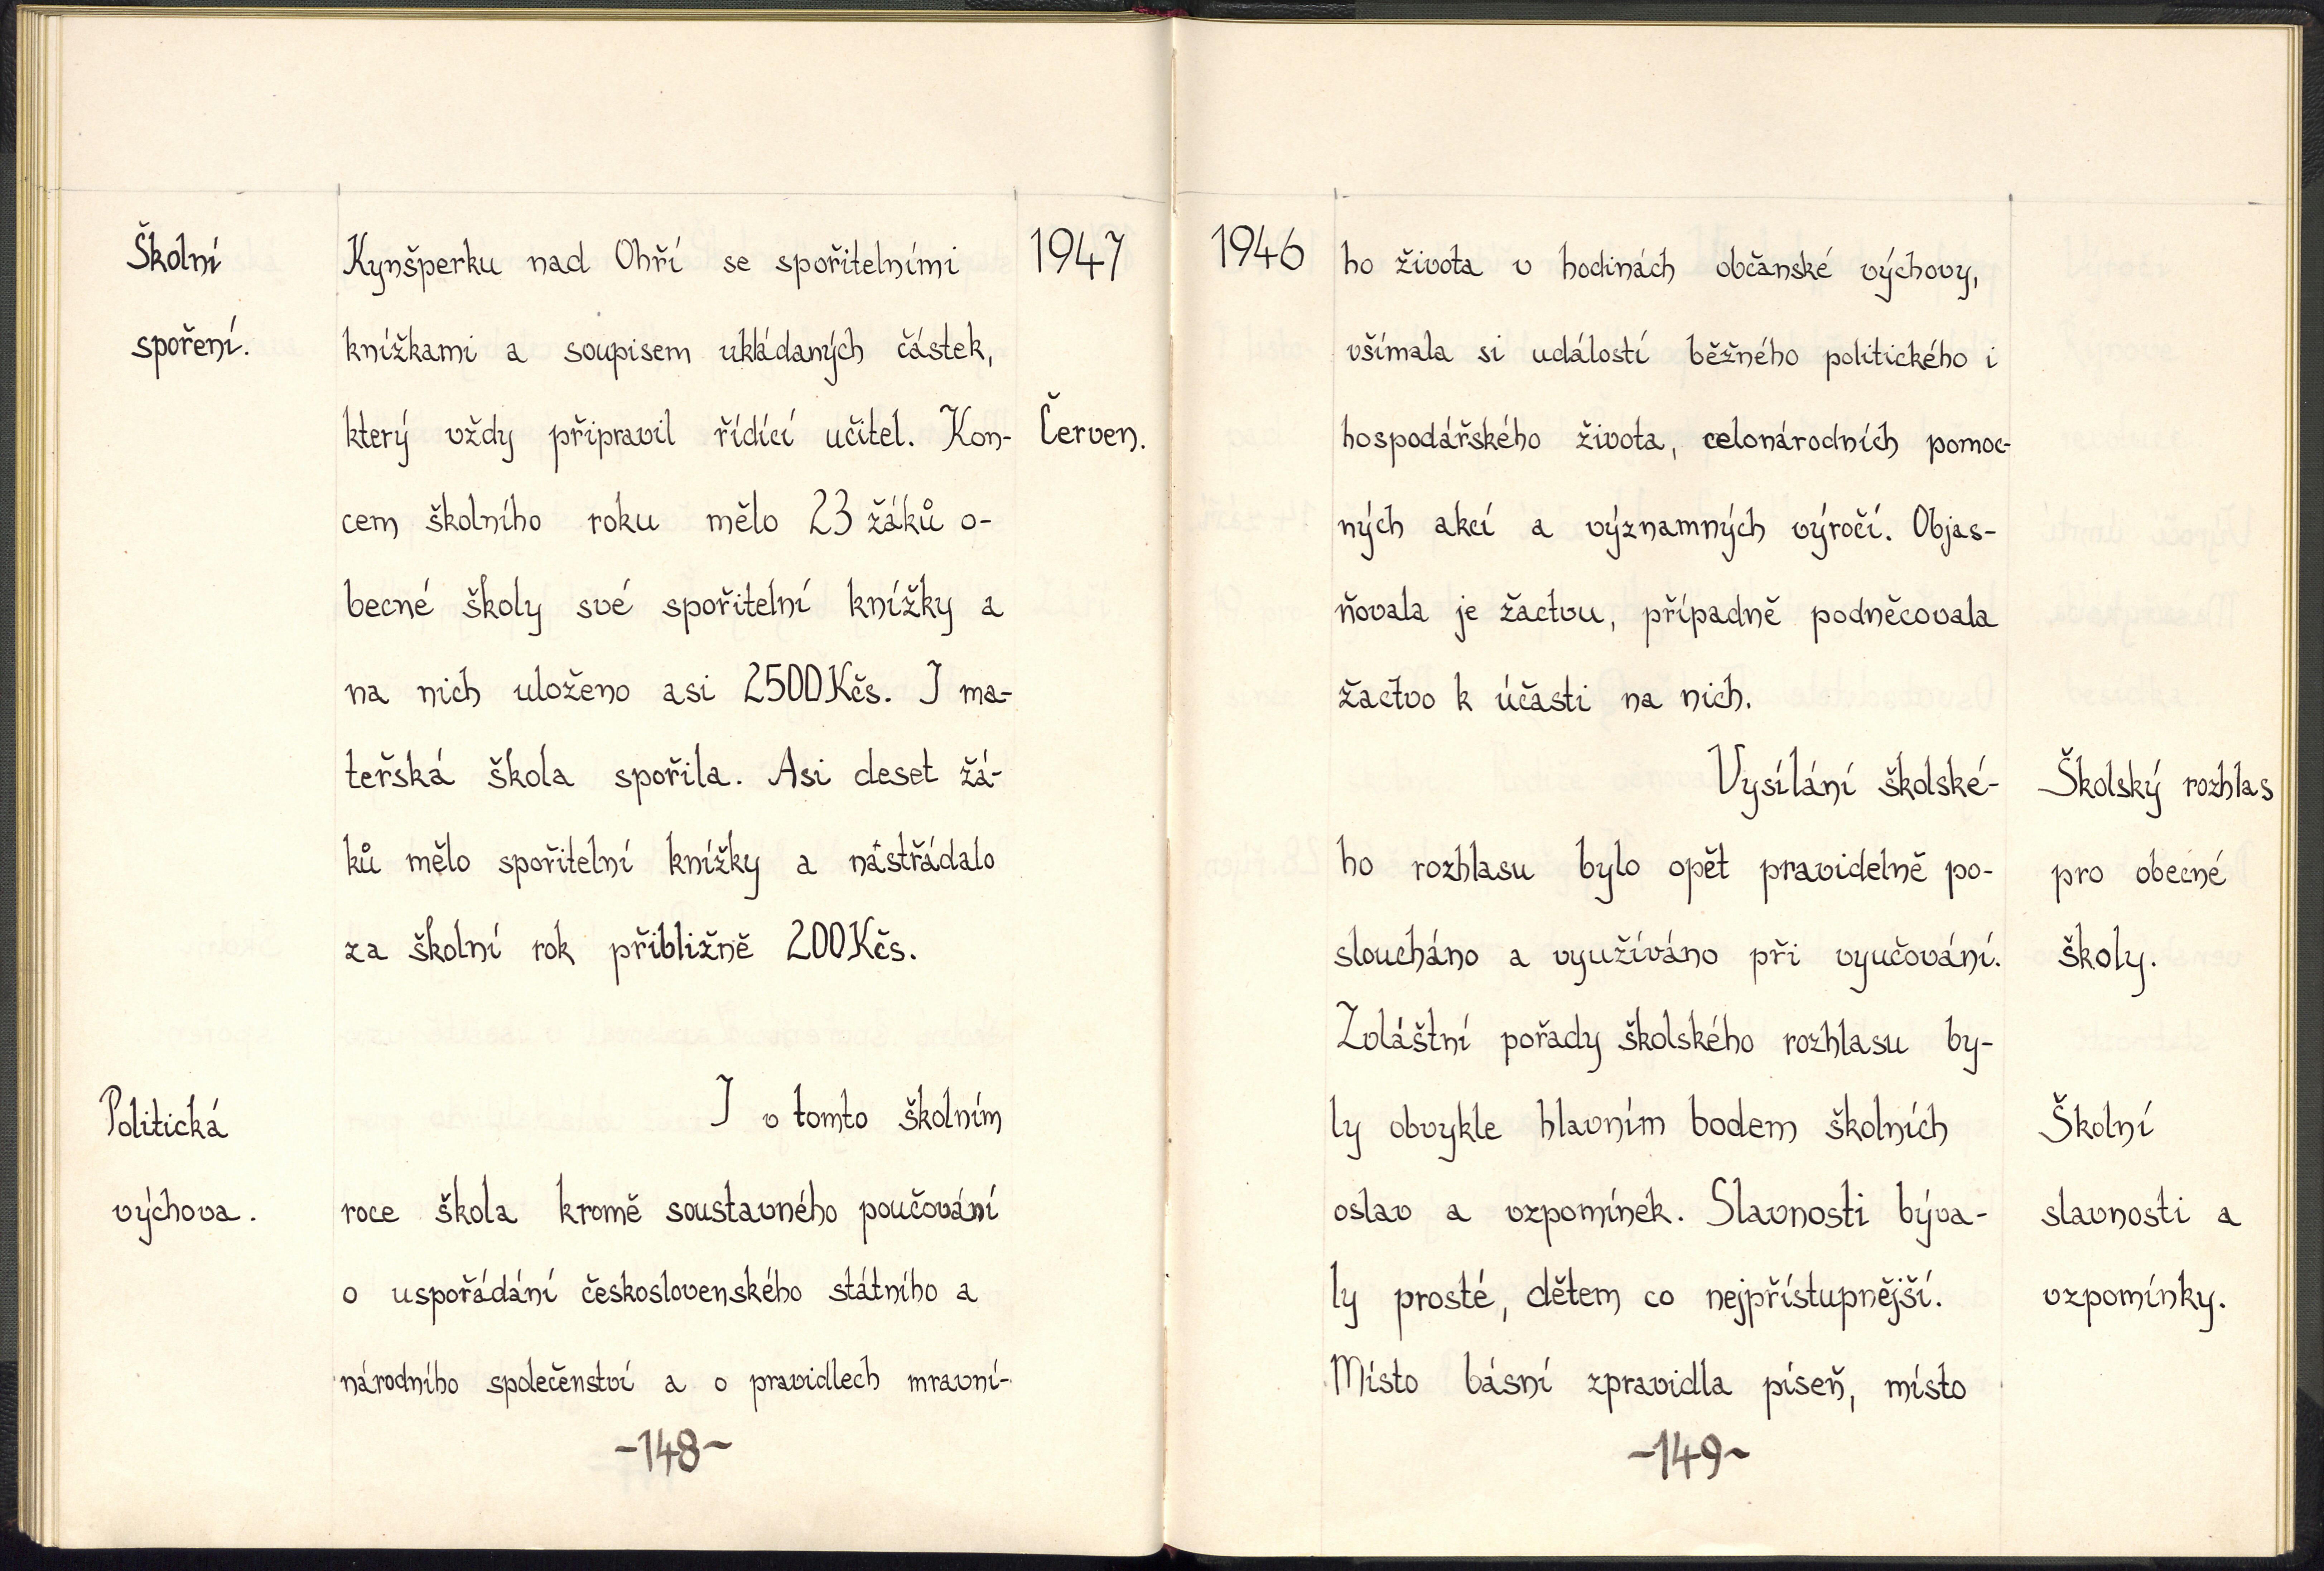 Školní
spoření.
Kynšperku nad Ohří se spořitelními
knížkami a soupisem ukládaných částek,
který vždy připravil řídící učitel. Kon-
cem školního roku mělo 23 žáků o-
becné školy své spořitelní knížky a
na nich uloženo asi 2500Kčs. I ma-
teřská škola spořila. Asi deset žá-
ků mělo spořitelní knížky a nástřádalo
za školní rok přibližně 200Kčs.
1947
Červen.
Politická
výchova.
I v tomto školním
roce škola kromě soustavného poučování
o uspořádání československého státního a
národního společenství a o pravidlech mravní-
-148-
1946
ho života v hodinách občanské výchovy,
všímala si událostí běžného politického i
hospodářského života, celonárodních pomoc-
ných akcí a významných výročí. Objas-
ňovala je žactvu, případně podněcovala
žactvo k účasti na nich.
Vysílání školské-
ho rozhlasu bylo opět pravidelně po-
sloucháno a využíváno při vyučování.
Zvláštní pořady školského rozhlasu by-
ly obvykle hlavním bodem školních
oslav a vzpomínek. Slavnosti býva-
ly prosté, dětem co nejpřístupnější.
Místo básní zpravidla píseň, místo
Školský rozhlas
pro obecné
školy.
Školní
slavnosti a
vzpomínky.
-149-